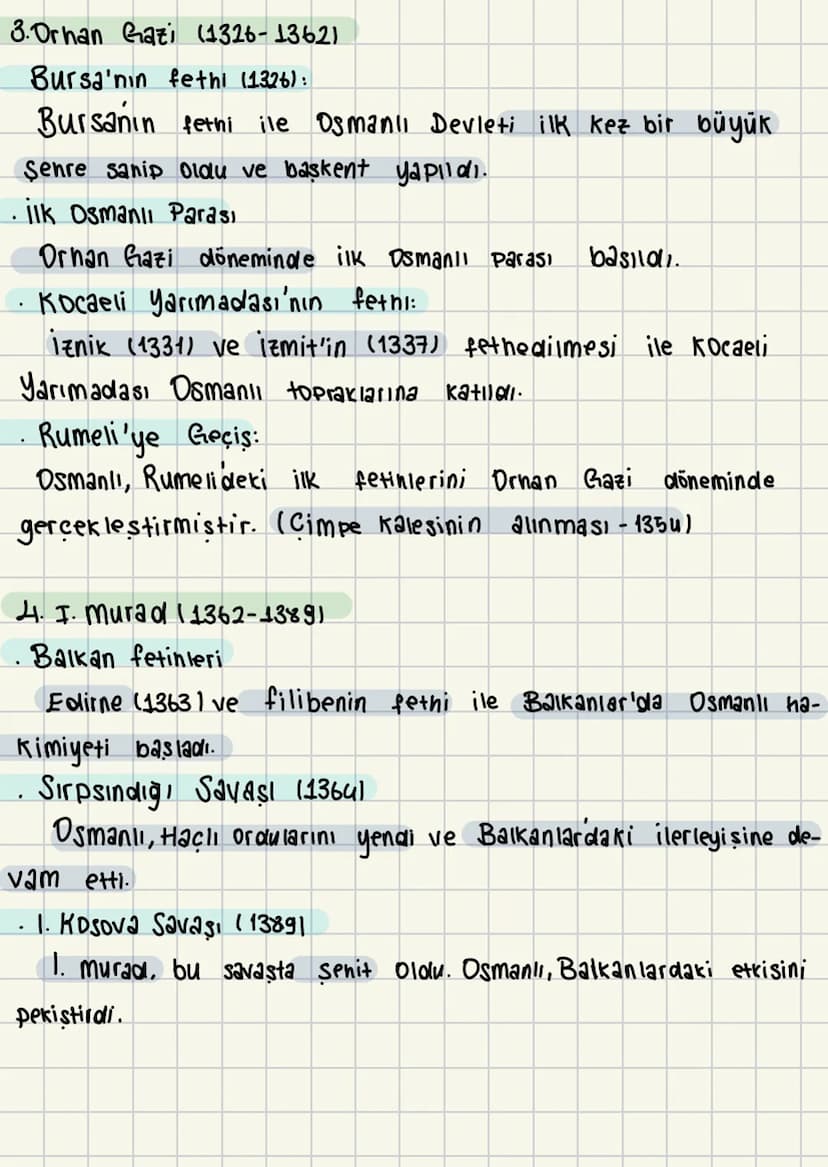 3.Orhan Gazi (1326-1362)
Bursa'nın fethi (1326):
Bursa'nın fethi ile Osmanlı Devleti ilk kez bir büyük
şehre sahip oldu ve başkent yapıldı.
• İlk Osmanlı Parası
Orhan Gazi döneminde ilk Osmanlı parası basıldı.
• Kocaeli Yarımadası'nın fethi:
İznik (1331) ve İzmit'in (1337) fethedilmesi ile Kocaeli
Yarımadası Osmanlı topraklarına katıldı.
• Rumeli'ye Geçiş:
Osmanlı, Rumeli'deki ilk fetihlerini Orhan Gazi döneminde
gerçekleştirmiştir. (Çimpe Kalesinin alınması - 1354)
4. I. Murad (1362-1389)
• Balkan fetihleri
Edirne (1363) ve filibenin fethi ile Balkanlar'da Osmanlı ha-
kimiyeti başladı.
• Sırpsındığı Savaşı (1364)
Osmanlı, Haçlı ordularını yendi ve Balkanlar'daki ilerleyişine de-
vam etti.
• 1. Kosova Savaşı (1389)
1. murad, bu savaşta şehit oldu. Osmanlı, Balkanlardaki etkisini
pekiştirdi.